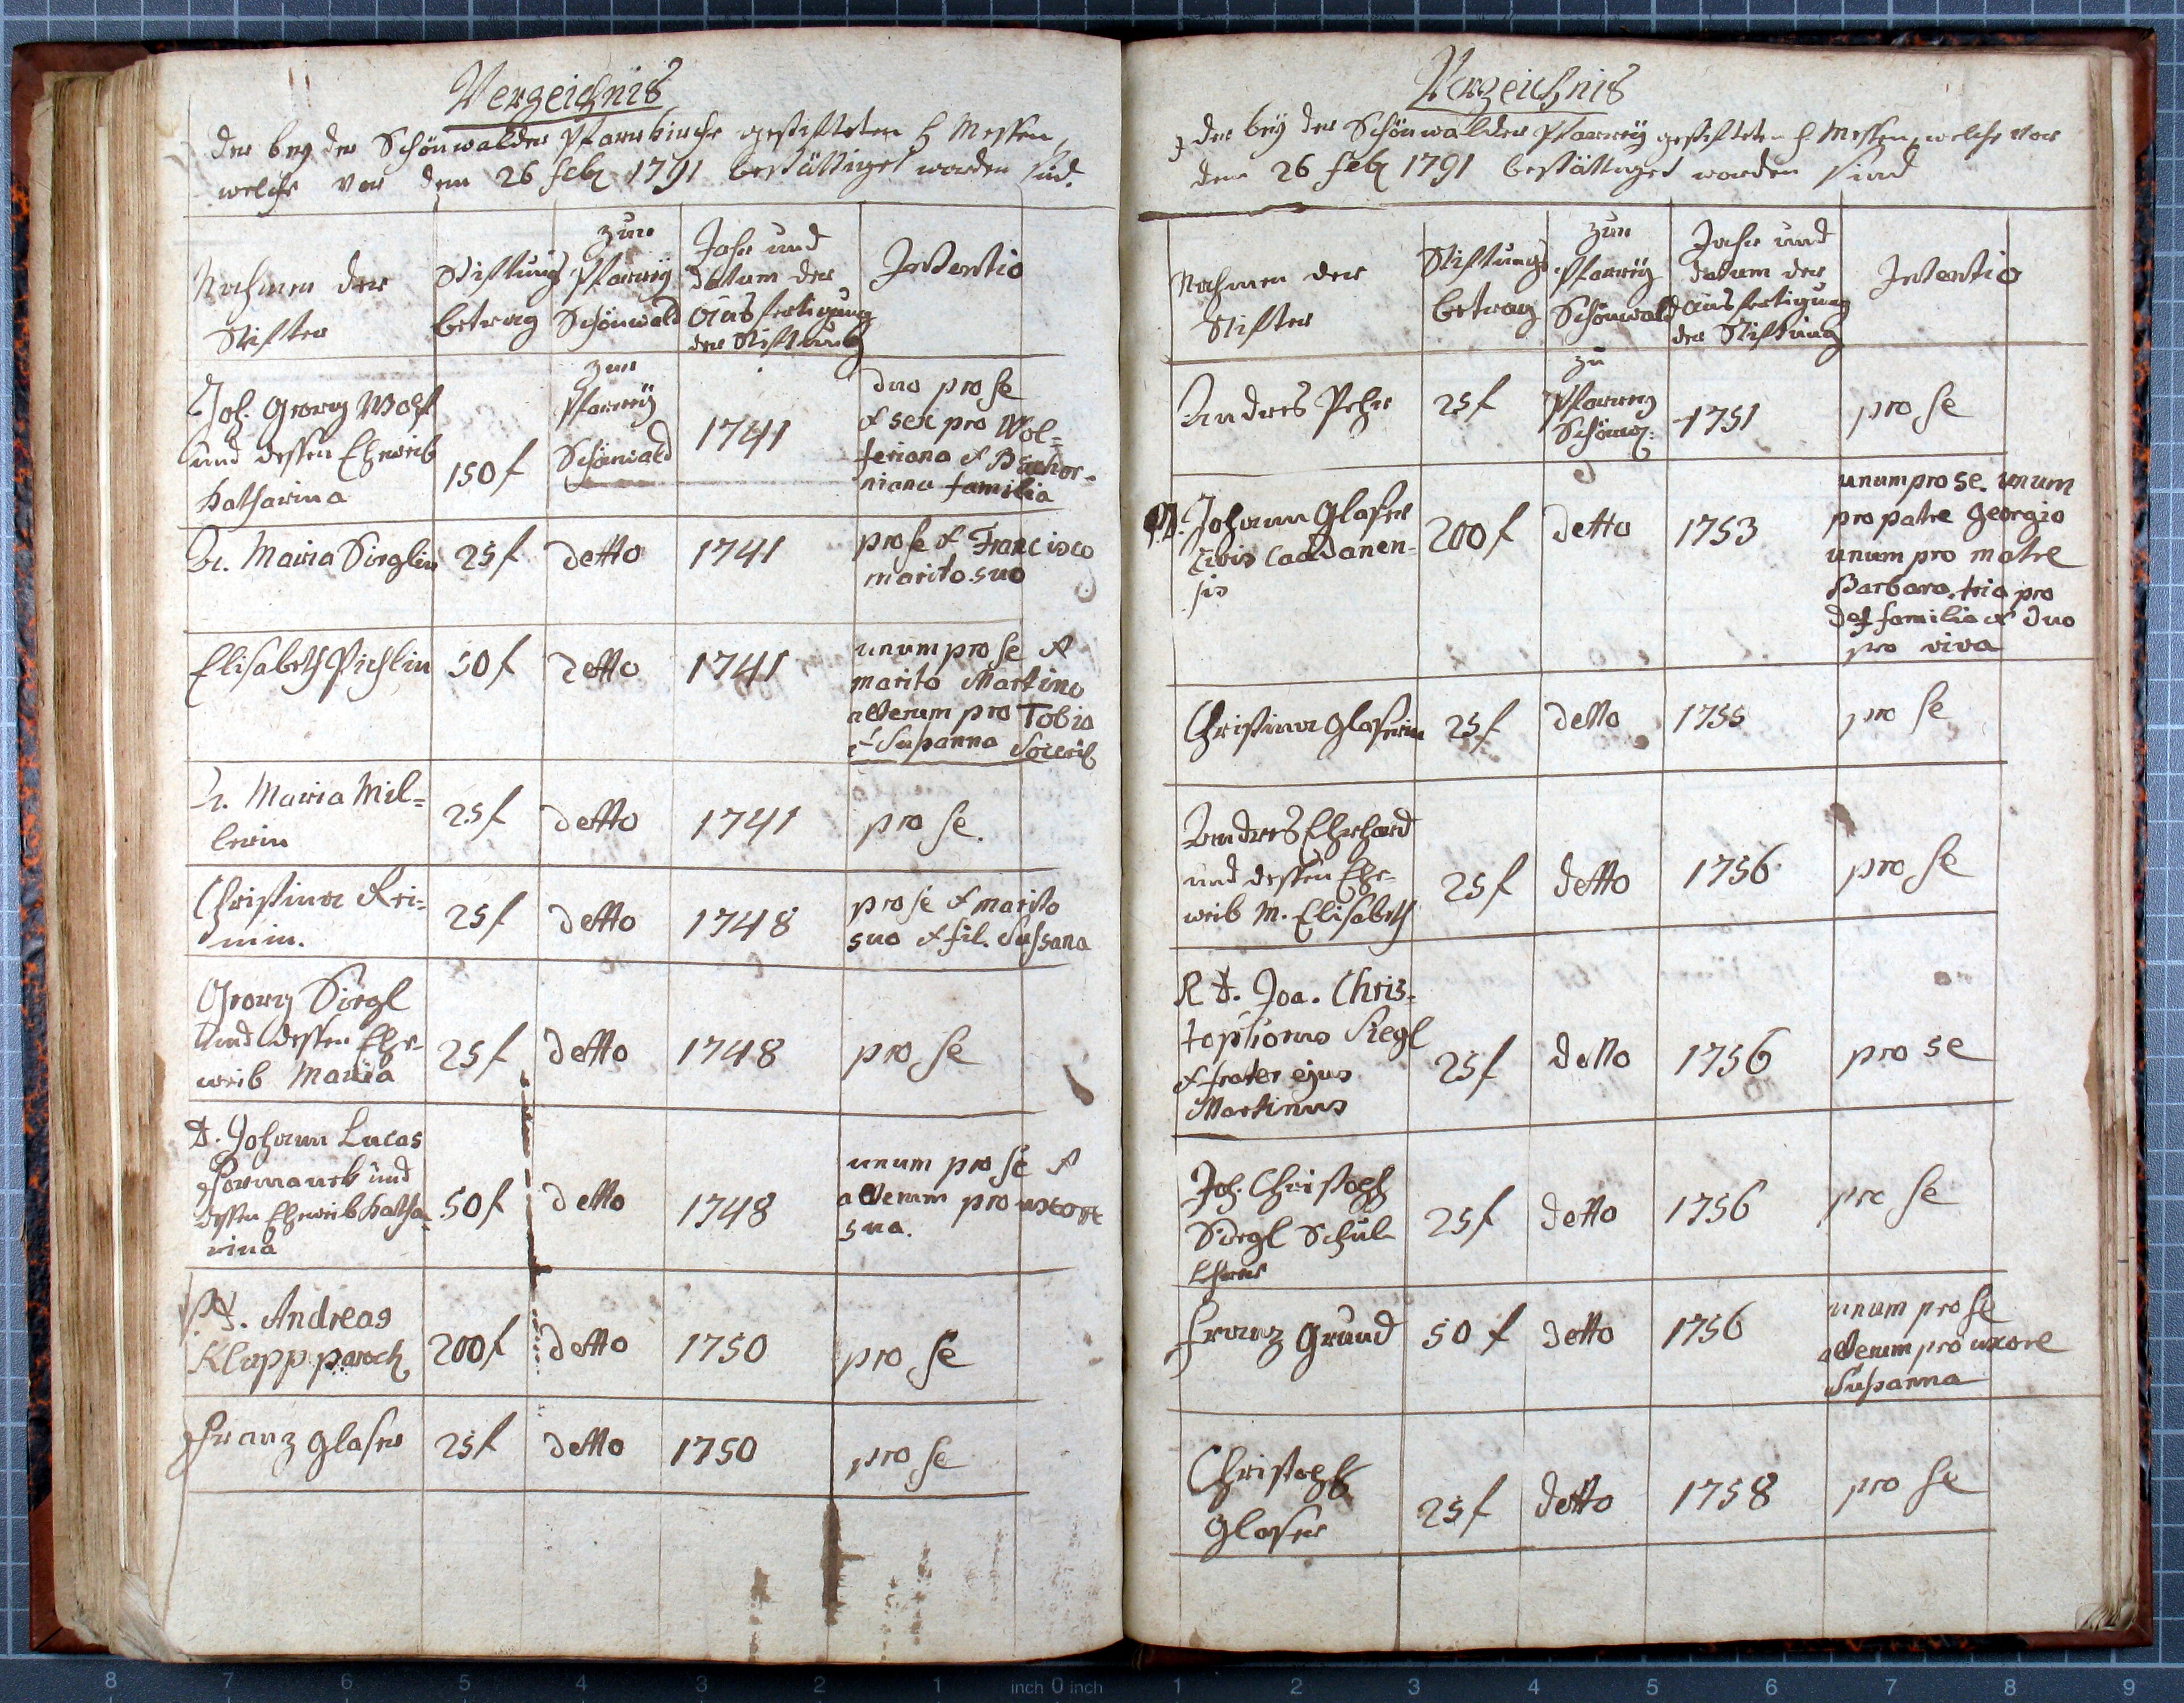 Verzeichnis
der bey der Schönwalder Pfarrkirche gestifteten h Messen,
welche vor dem 26 Feb 1791 bestättiget worden sind.
Nahmen der Stifter
Stiftungs betrag
zur Pfarreÿ Schönwald
Jahr und datum der Ausfertigung der Stiftung
Intentio
Joh. Georg Wolf
und dessen Eheweib
Katharina
150 f
zur
Pfarreÿ
Schönwald
1741
duo pro se
et sex pro Wol=
feriana et
niana familia
A. Maria Sieglin
25 f
detto
1741
pro se et Francisco
marito suo
Elisabeth Pichlin
50 f
detto
1741
unum pro se et
marito Martino
alterum pro Tobia
et Susanna Soceris
A. Maria Mil=
lerin
25 f
detto
1741
pro se.
Christina Kri=
nin.
25 f
detto
1748
pro se et marito
suo et fil. Sussana
Georg Siegl
und dessen Ehe-
weib Maria
25 f
detto
1748
pro se
D. Johann Lucas
Pormanek und
dessen Eheweib Katha-
rina
50 f
detto
1748
unum pro se et
alterum pro uxore
sua.
P D. Andreas
Klupp paroch
200 f
detto
1750
pro se
Franz Glaser
25 f
detto
1750
pro se
Verzeichnis
der beÿ der Schönwalder Pfarreÿ gestifteten h Messen, welche vor
dem 26 Feb 1791 bestättiget worden sind
Nahmen der Stifter
Stiftungs betrag
zur Pfarreÿ Schönwald
Jahr und datum der Ausfertigung der Stiftung
Intentio
Andres Pehr
25 f
zu
Pfarrey
Schönw:
1751
pro se
Johann Glaser
Civis Caadanen-
sis
200 f
detto
1753
unum pro se. unum
pro patre Georgio
unum pro matre
Barbara. tria pro
def familia et duo
pro viva
Christina Glaserin
25 f
detto
1755
pro se
Andres Ehrhard
und dessen Ehe-
weib M. Elisabeth
25 f
detto
1756
pro se
R D. Joa. Chris-
tophorus Siegl
et frater ejus
Martinus
25 f
detto
1756
pro se
Joh. Christoph
Siegl Schul
Lehrer
25 f
detto
1756
pro se
Franz Grund
50 f
detto
1756
unum pro se
alterum pro uxore
Susanna
Christoph
Glaser
25 f
detto
1758
pro se
8 7 6 5 4 3 2 1 inch 0 inch 1 2 3 4 5 6 7 8 9